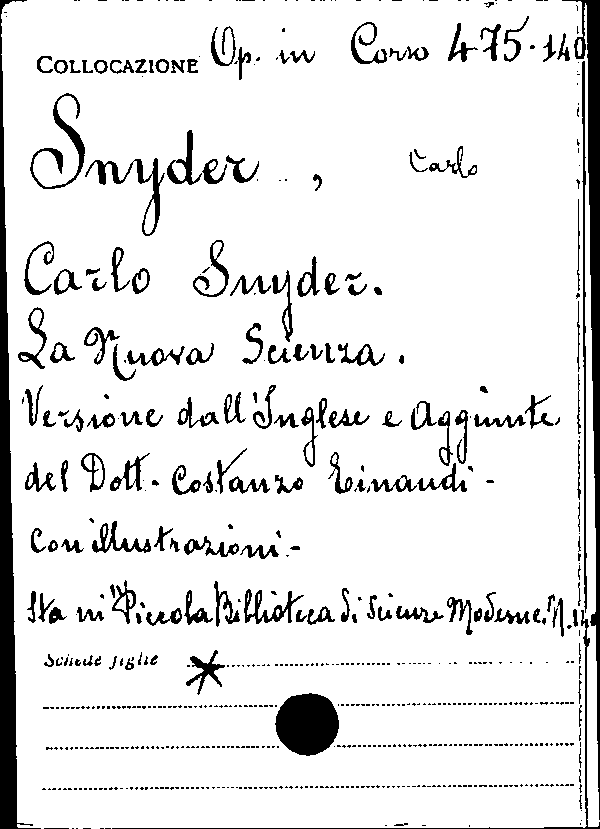 COLLOCAZIONE Op. in Corso 475.140
Snyder, Carlo
Carlo Snyder.
La Nuova Scienza.
Versione dall'Inglese e Aggiunte
del Dott. Costanzo Einaudi -
con illustrazioni. -
Sta in "Piccola Biblioteca di Scienze Moderne. N. 140
Schede figlie *